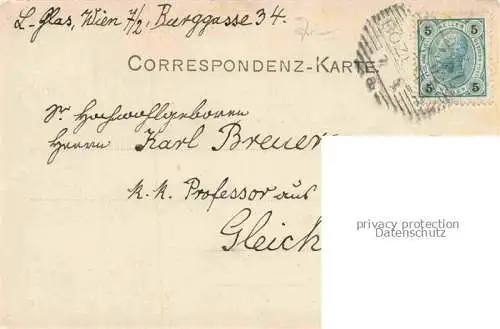 L. Glas, Wien 7/2, Burggasse 34.
7.-
CORRESPONDENZ-KARTE
5 5
5 5
Sr Hochwohlgeboren
Herrn Karl Breuer
k. k. Professor aus
Gleich
privacy protection
Datenschutz